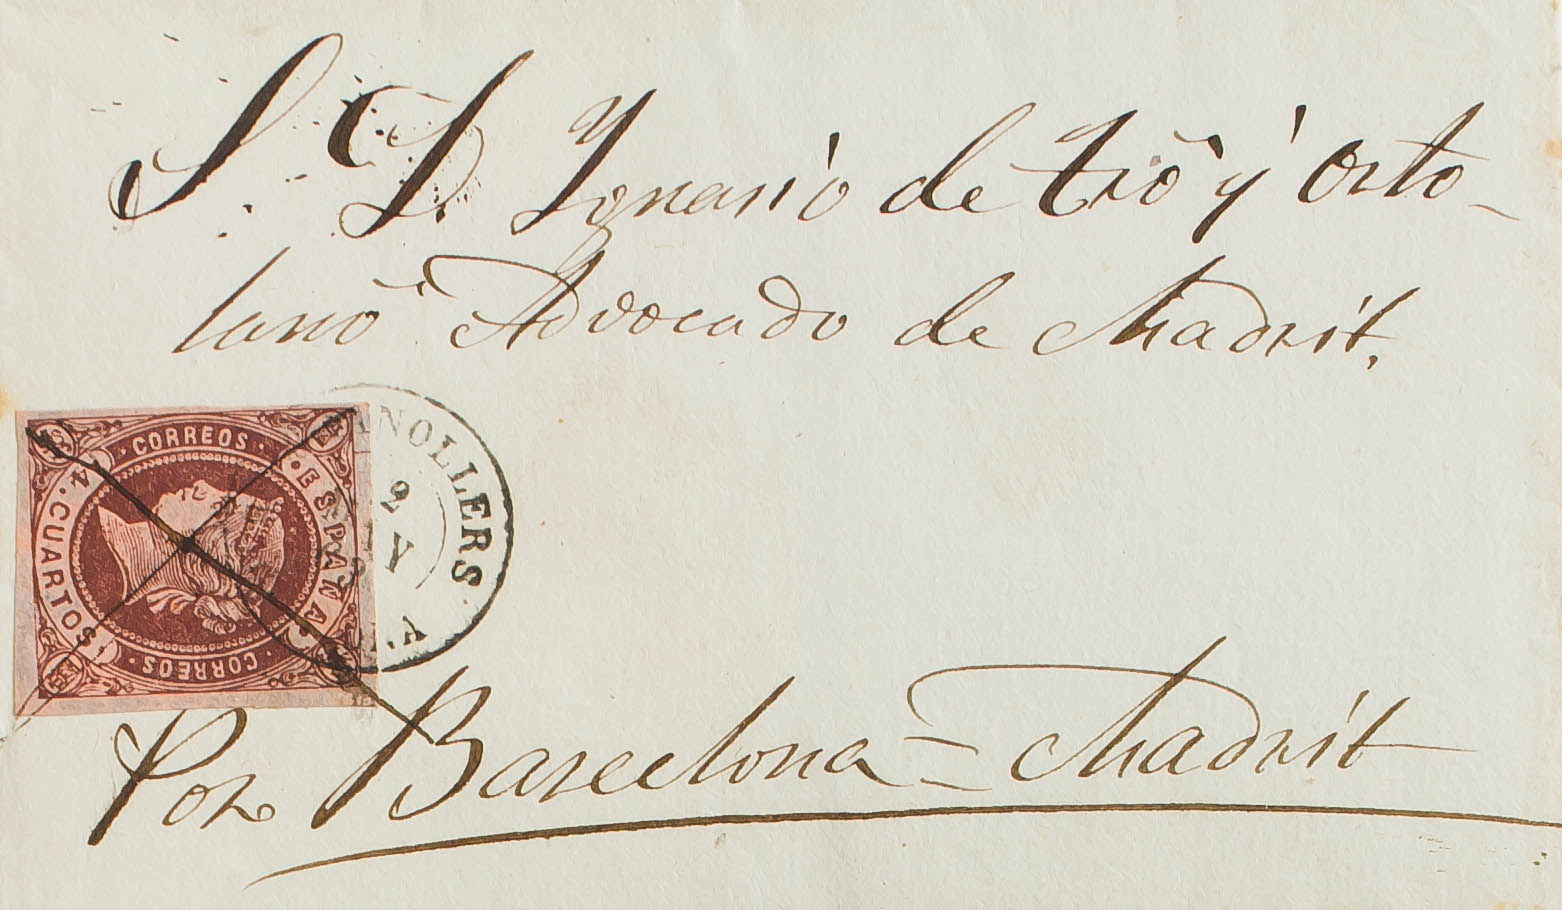 S. D. Ignasio de Trò y Orto-
lano Advocado de Madrit.
CORREOS
ESPAÑA
4 CUARTOS
CORREOS
ANOLLERS
2
Y
.A
Por Barcelona = Madrit